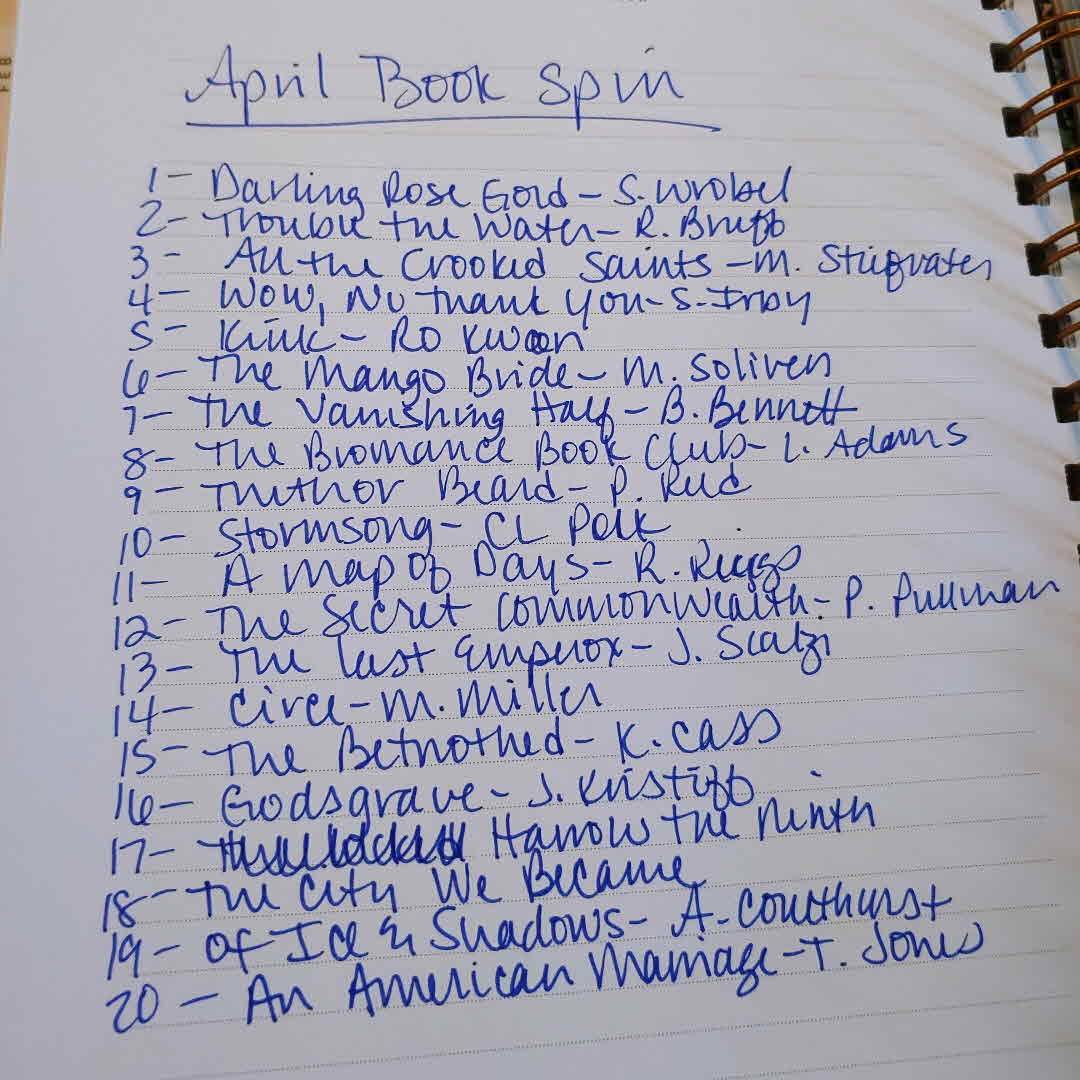 April Book Spin
1- Darling Rose Gold - S. Wrobel
2- Trouble the Water- R. Bruff
3- All the Crooked Saints -M. Stiefvater
4- Wow, No thank you- S. Irby
5- Kink- RO Kwon
6- The Mango Bride- M. Soliven
7- The Vanishing Half- B. Bennett
8- The Bromance Book Club- L. Adams
9- Trethor Beard- P. Reid
10- Stormsong- CL Polk
11- A Map of Days- R. Riggs
12- The Secret Commonwealth- P. Pullman
13- The Last Emperox- J. Scalzi
14- Circe- M. Miller
15- The Betrothed- K. Cass
16- Godsgrave- J. Kristiff
17- Harrow the Ninth
18- The City We Became
19- Of Ice & Shadows- A. Coulthurst
20- An American Marriage- T. Jones